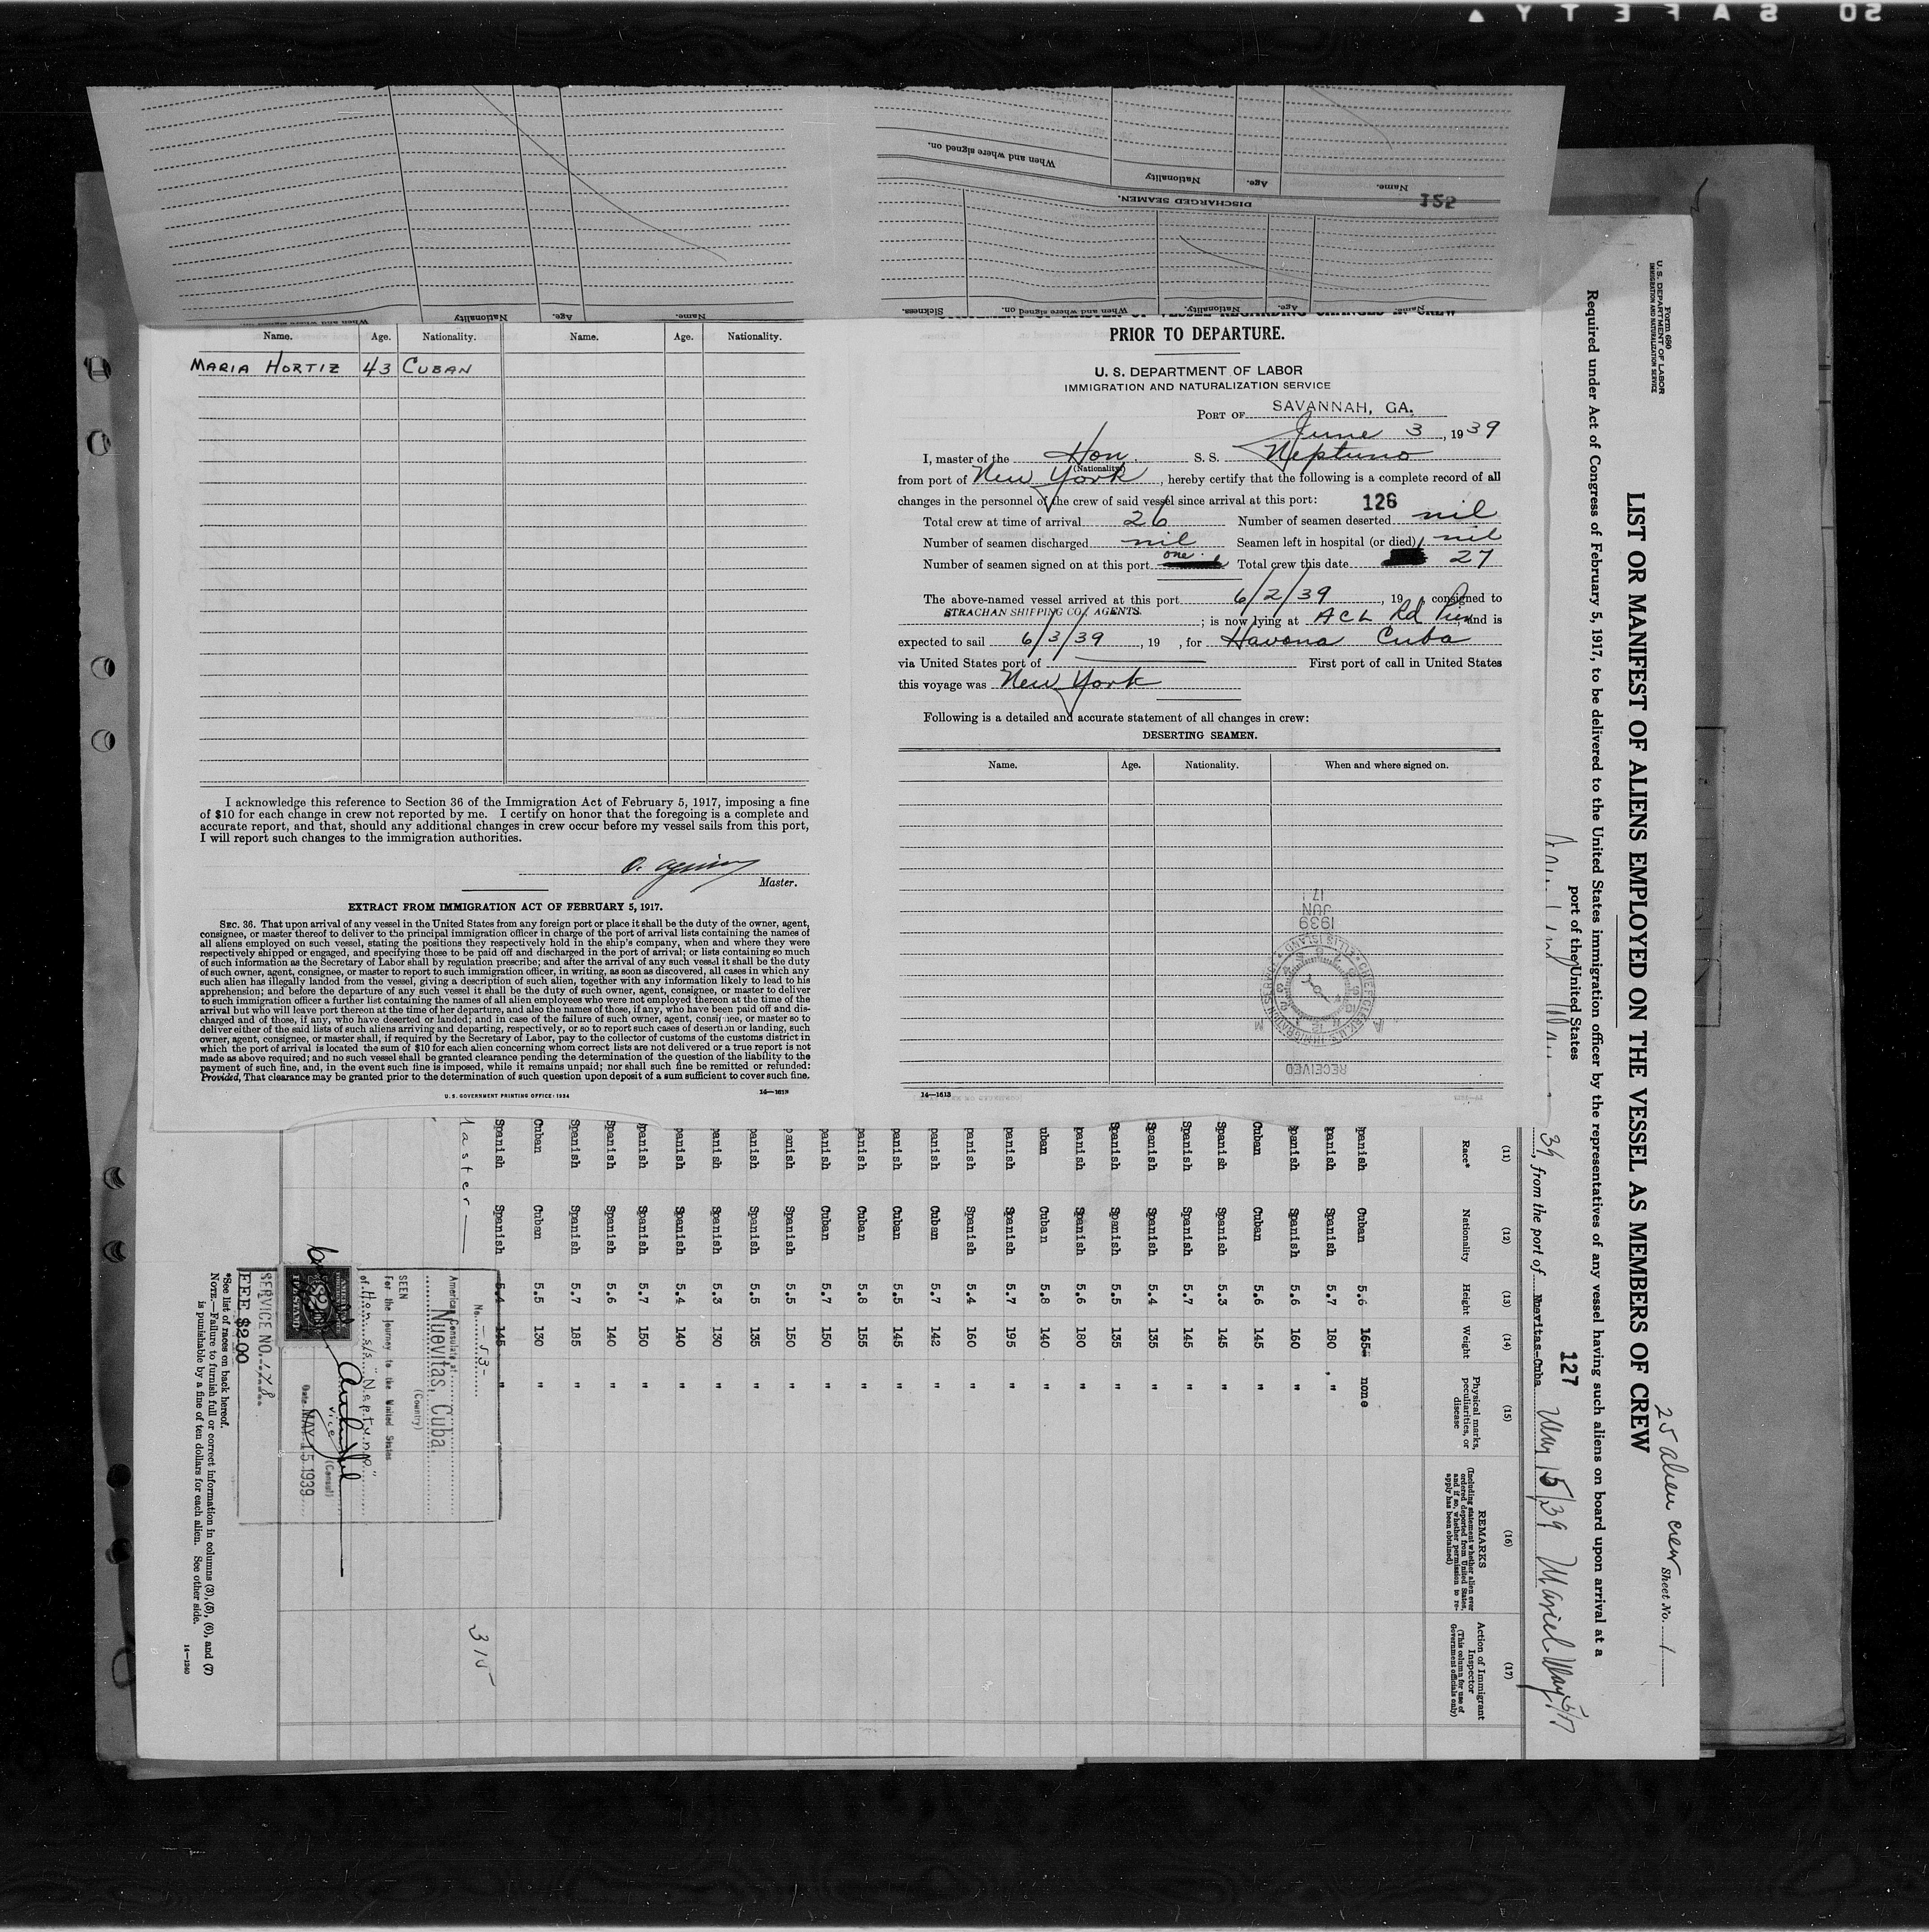 50 SAFETY ▲
When and where signed on.
Nationality
Age.
Name.
DISCHARGED SEAMEN.
152
Sickness.
When and where signed on.
Nationality.
Age.
Name.
When and where signed on.
Nationality
Age.
Name.
Name. Age. Nationality. Name. Age. Nationality.
MARIA HORTIZ 43 CUBAN
I acknowledge this reference to Section 36 of the Immigration Act of February 5, 1917, imposing a fine
of $10 for each change in crew not reported by me. I certify on honor that the foregoing is a complete and
accurate report, and that, should any additional changes in crew occur before my vessel sails from this port,
I will report such changes to the immigration authorities.
Master.
EXTRACT FROM IMMIGRATION ACT OF FEBRUARY 5, 1917.
SEC. 36. That upon arrival of any vessel in the United States from any foreign port or place it shall be the duty of the owner, agent,
consignee, or master thereof to deliver to the principal immigration officer in charge of the port of arrival lists containing the names of
all aliens employed on such vessel, stating the positions they respectively hold in the ship's company, when and where they were
respectively shipped or engaged, and specifying those to be paid off and discharged in the port of arrival; or lists containing so much
of such information as the Secretary of Labor shall by regulation prescribe; and after the arrival of any such vessel it shall be the duty
of such owner, agent, consignee, or master to report to such immigration officer, in writing, as soon as discovered, all cases in which any
such alien has illegally landed from the vessel, giving a description of such alien, together with any information likely to lead to his
apprehension; and before the departure of any such vessel it shall be the duty of such owner, agent, consignee, or master to deliver
to such immigration officer a further list containing the names of all alien employees who were not employed thereon at the time of the
arrival but who will leave port thereon at the time of her departure, and also the names of those, if any, who have been paid off and dis-
charged and of those, if any, who have deserted or landed; and in case of the failure of such owner, agent, consignee, or master so to
deliver either of the said lists of such aliens arriving and departing, respectively, or so to report such cases of desertion or landing, such
owner, agent, consignee, or master shall, if required by the Secretary of Labor, pay to the collector of customs of the customs district in
which the port of arrival is located the sum of $10 for each alien concerning whom correct lists are not delivered or a true report is not
made as above required; and no such vessel shall be granted clearance pending the determination of the question of the liability to the
payment of such fine, and, in the event such fine is imposed, while it remains unpaid; nor shall such fine be remitted or refunded:
Provided, That clearance may be granted prior to the determination of such question upon deposit of a sum sufficient to cover such fine.
U. S. GOVERNMENT PRINTING OFFICE: 1934
PRIOR TO DEPARTURE.
U. S. DEPARTMENT OF LABOR
IMMIGRATION AND NATURALIZATION SERVICE
PORT OF SAVANNAH, GA.
June 3, 1939
I, master of the Hon. S. S. Neptuno
(Nationality)
from port of New York, hereby certify that the following is a complete record of all
changes in the personnel of the crew of said vessel since arrival at this port: 126
Total crew at time of arrival 26 Number of seamen deserted nil
Number of seamen discharged nil Seamen left in hospital (or died) nil
Number of seamen signed on at this port one Total crew this date 27
The above-named vessel arrived at this port 6/2/39, 19 , consigned to
STRACHAN SHIPPING CO., AGENTS. ; is now lying at ACL Rd Pier, and is
expected to sail 6/3/39, 19 , for Havana Cuba
via United States port of First port of call in United States
this voyage was New York
Following is a detailed and accurate statement of all changes in crew:
DESERTING SEAMEN.
Name. Age. Nationality. When and where signed on.
17
JUN
1939
RECEIVED
14—1613
Form 680
U. S. DEPARTMENT OF LABOR
IMMIGRATION AND NATURALIZATION SERVICE
25 alien crew Sheet No. 1
LIST OR MANIFEST OF ALIENS EMPLOYED ON THE VESSEL AS MEMBERS OF CREW
Required under Act of Congress of February 5, 1917, to be delivered to the United States immigration officer by the representatives of any vessel having such aliens on board upon arrival at a
port of the United States
127
39, from the port of Nuevitas-Cuba May 15/39 Mariel May 5/17
(11) (12) (13) (14) (15) (16) (17)
Race* Nationality Height Weight Physical marks, peculiarities, or disease
REMARKS (Including statement whether alien ever ordered deported from United States, and if so, whether permission to re-apply has been obtained)
Action of Immigrant Inspector (This column for use of Government officials only)
panish Cuban 5.6 165 none
panish Spanish 5.7 180 "
panish Spanish 5.6 160 "
Cuban Cuban 5.6 145 "
Spanish Spanish 5.3 145
Spanish Spanish 5.7 145 "
Spanish Spanish 5.4 135 "
Spanish Spanish 5.5 135 "
panish Spanish 5.6 180 "
uban Cuban 5.8 140 "
panish Spanish 5.7 195 "
panish Spanish 5.4 160 "
panish Cuban 5.7 142 "
panish Cuban 5.5 145 "
panish Cuban 5.8 155 "
panish Cuban 5.7 150 "
panish Spanish 5.5 150 "
panish Spanish 5.5 135 "
panish Spanish 5.3 130 "
panish Spanish 5.4 140 "
panish Spanish 5.7 150 "
Spanish Spanish 5.6 140 "
Spanish Spanish 5.7 185 "
Cuban Cuban 5.5 130 "
Spanish Spanish 5.4 145 "
Master
315
No. -53-
American Consulate at
Nuevitas, Cuba.
(Country)
SEEN
For the journey to the United States
of Hon. s/s "Neptuno"
Vice (Consul)
Date MAY 15 1939
SERVICE NO. 178
FEE $2.00
*See list of races on back hereof.
NOTE.—Failure to furnish full or correct information in columns (3), (5), (6), and (7)
is punishable by a fine of ten dollars for each alien. See other side.
14—1240